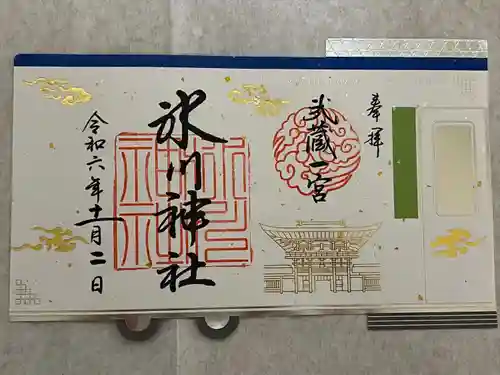 奉拝
武蔵一宮
氷川神社
令和六年十一月二日